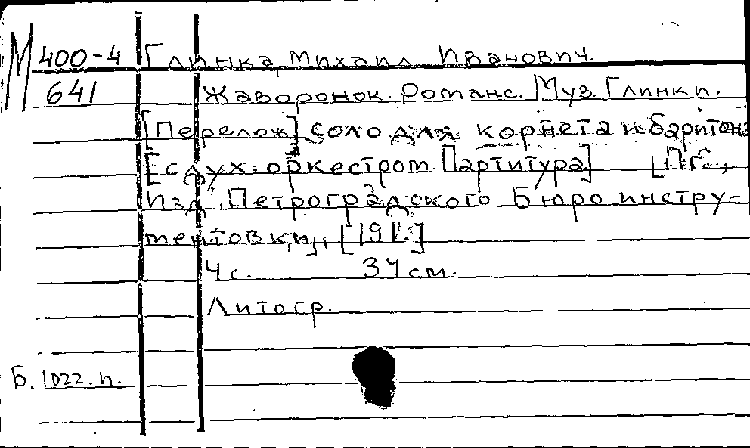 М 400-4 Глинка, Михаил Иванович.
641 Жаворонок. Романс. Муз. Глинки.
[Перелож.] соло для корнета и баритона
[с дух. оркестром. Партитура] [Пг.,
Изд. Петроградского Бюро инстру-
ментовки, [191.]
4 с. 34 см.
Литогр.
Б. 1022. п.